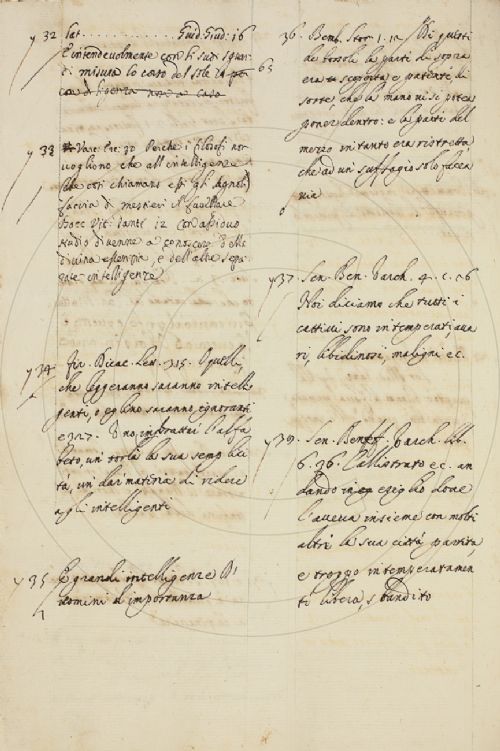 y 32 lat . . . . . . . . . . . . Guid. Giud. 16
E intendevolmente con li suoi sguar
di misura lo corso del sole
65
y 33 Varc. Lez. 30 Perche i filosofi non
vogliono che all'intelligenze
che così chiamano essi gli Agnoli
faccia di mestieri il favellare
Bocc. Vit. Dant. 12 con assiduo
studio divenne a conoscer della
divina essenzia, e dell'altre sepa
rate intelligenze
y 34 Fir. Disc. Lett. 315. O quelli,
che leggeranno saranno intelli
genti, o eglino saranno ignoranti
e 327. un
torla la sua semplici
tà, un dar materia di ridere
agli intelligenti
y 35 E grandi intelligenze D'
uomini d'importanza
36. Bemb. Stor. 1. 12. Di questi
de bossoli la parte di sopra
era segreta e patente di
sorte che la mano vi si potea
poner dentro: e la parte del
mezzo in tanto era ristretta
che ad un suffragio solo facea
via
y 37. Sen. Ben. Varch. 4. c. 26
Noi diciamo che tutti i
cattivi sono intemperati, ava
ri, libidinosi, maligni ec.
y 39. Sen. Ben. Varch. lib.
6. 36. Callistrato ec. an
dando in esiglio dove
l'aveva insieme con molti
altri la sua città partita,
e troppo intemperatamen
te libera, sbandito